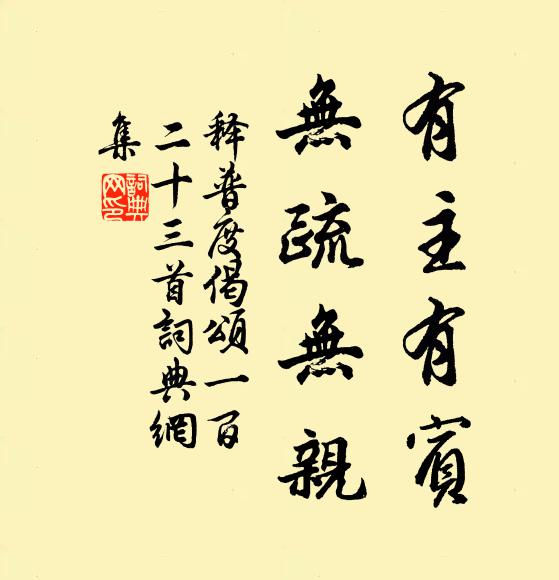 有主有賓
無疏無親
释普度偈頌一百
二十三首詞典網
集
詞典
网印